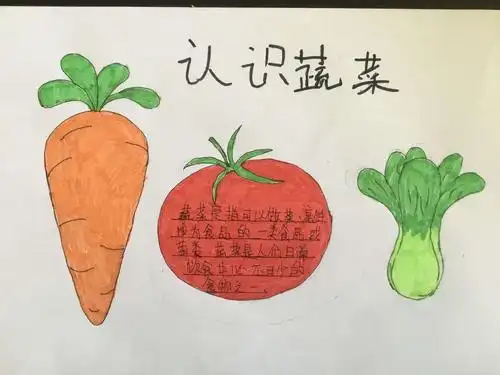 认识蔬菜
蔬菜是指可以做菜、烹饪
成为食品的一类食品或
蔬菜是人们日常
饮食中必不可少的
食物之一。